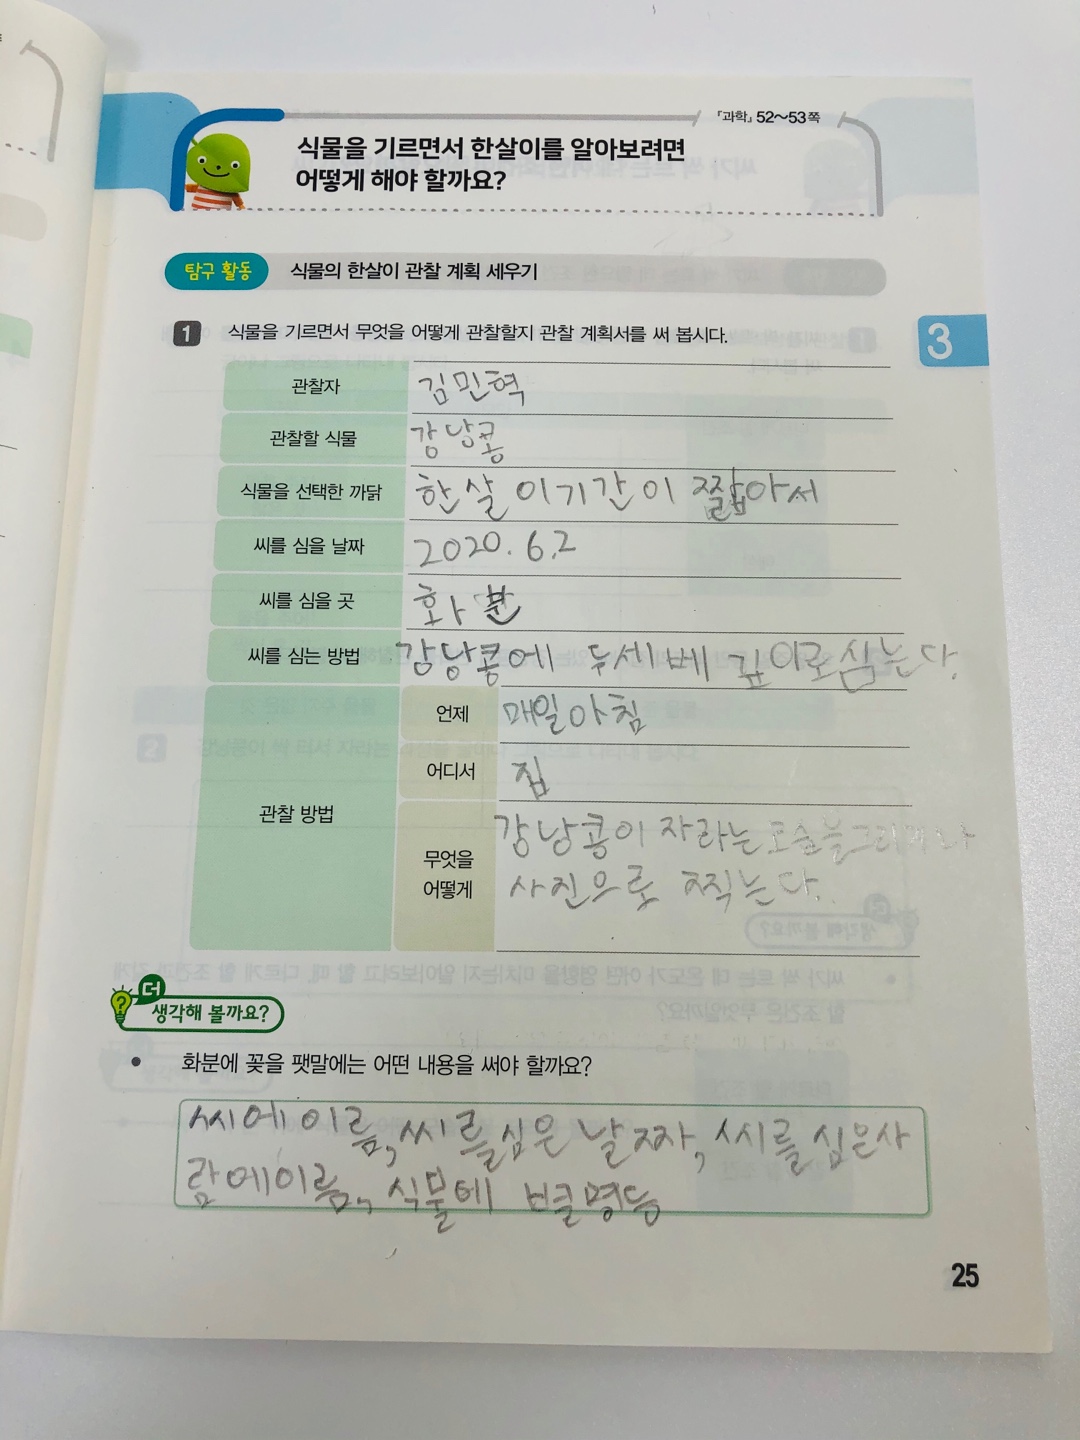 『과학』 52~53쪽
식물을 기르면서 한살이를 알아보려면
어떻게 해야 할까요?
탐구 활동 식물의 한살이 관찰 계획 세우기
1 식물을 기르면서 무엇을 어떻게 관찰할지 관찰 계획서를 써 봅시다.
3
관찰자 김민혁
관찰할 식물 강낭콩
식물을 선택한 까닭 한살이기간이 짧아서
씨를 심을 날짜 2020.6.2
씨를 심을 곳 화분
씨를 심는 방법 강낭콩에 두세베 깊이로심는다.
관찰 방법
언제 매일아침
어디서 집
무엇을 어떻게 강낭콩이 자라는모습를그리거나
사진으로 찍는다.
더
생각해 볼까요?
• 화분에 꽂을 팻말에는 어떤 내용을 써야 할까요?
씨에이름,씨를심은날짜, 씨를심은사
람에이름, 식물에 별명등
25